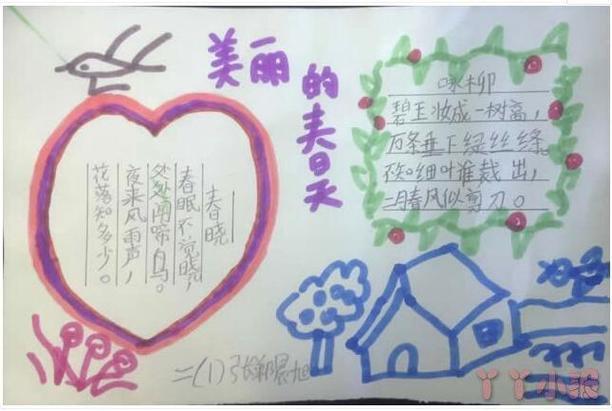 美丽的春天
春晓
春眠不觉晓，
处处闻啼鸟。
夜来风雨声，
花落知多少。
咏柳
碧玉妆成一树高，
万条垂下绿丝绦。
不知细叶谁裁出，
二月春风似剪刀。
二(1)张
丫丫小